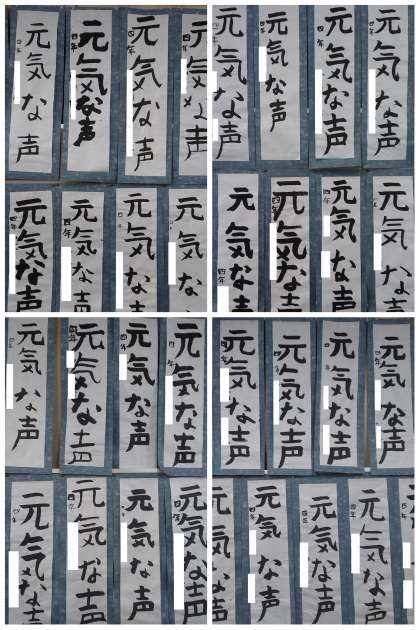 元気な声
四年
元気な声
四年
元気な声
四年
元気な声
元気な
元気な声
元気な声
四年
元気な声
四年
元気な声
四年
元気な声
四年
元気な声
四年
元気な声
四年
元気な
元気な声
四年
元気な声
四年
元気な声
四年
元気な声
四年
元気な声
元気な声
四年
元気な声
元気な声
四年
元気な声
元気な声
四年
元気な声
元気な声
元気な声
元気な声
元気な声
四年
元気な声
元気な声
四年
元気な声
四年
元気な声